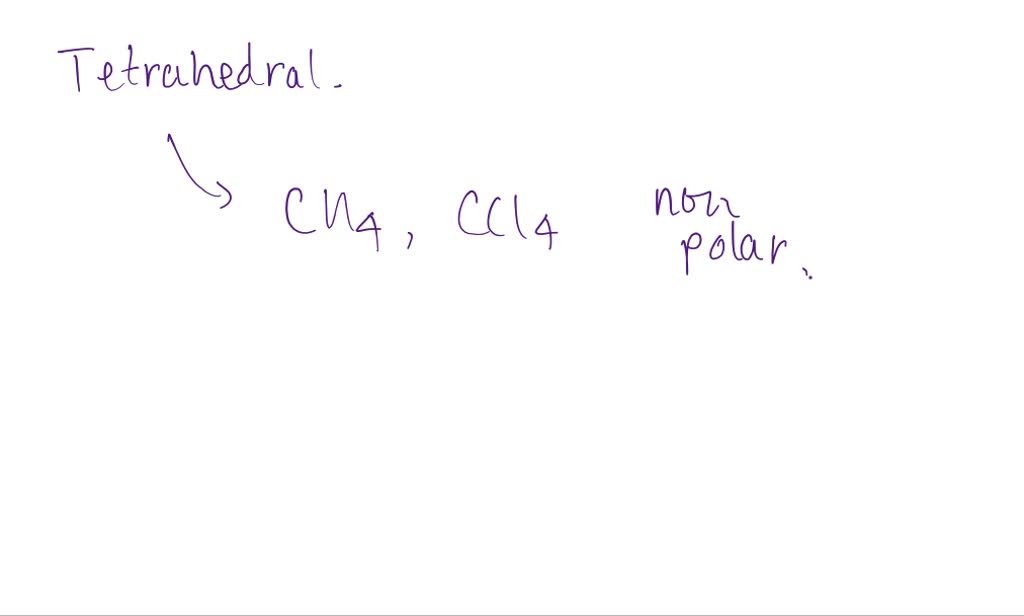 Tetrahedral.
CH4, CCl4 non
polar.